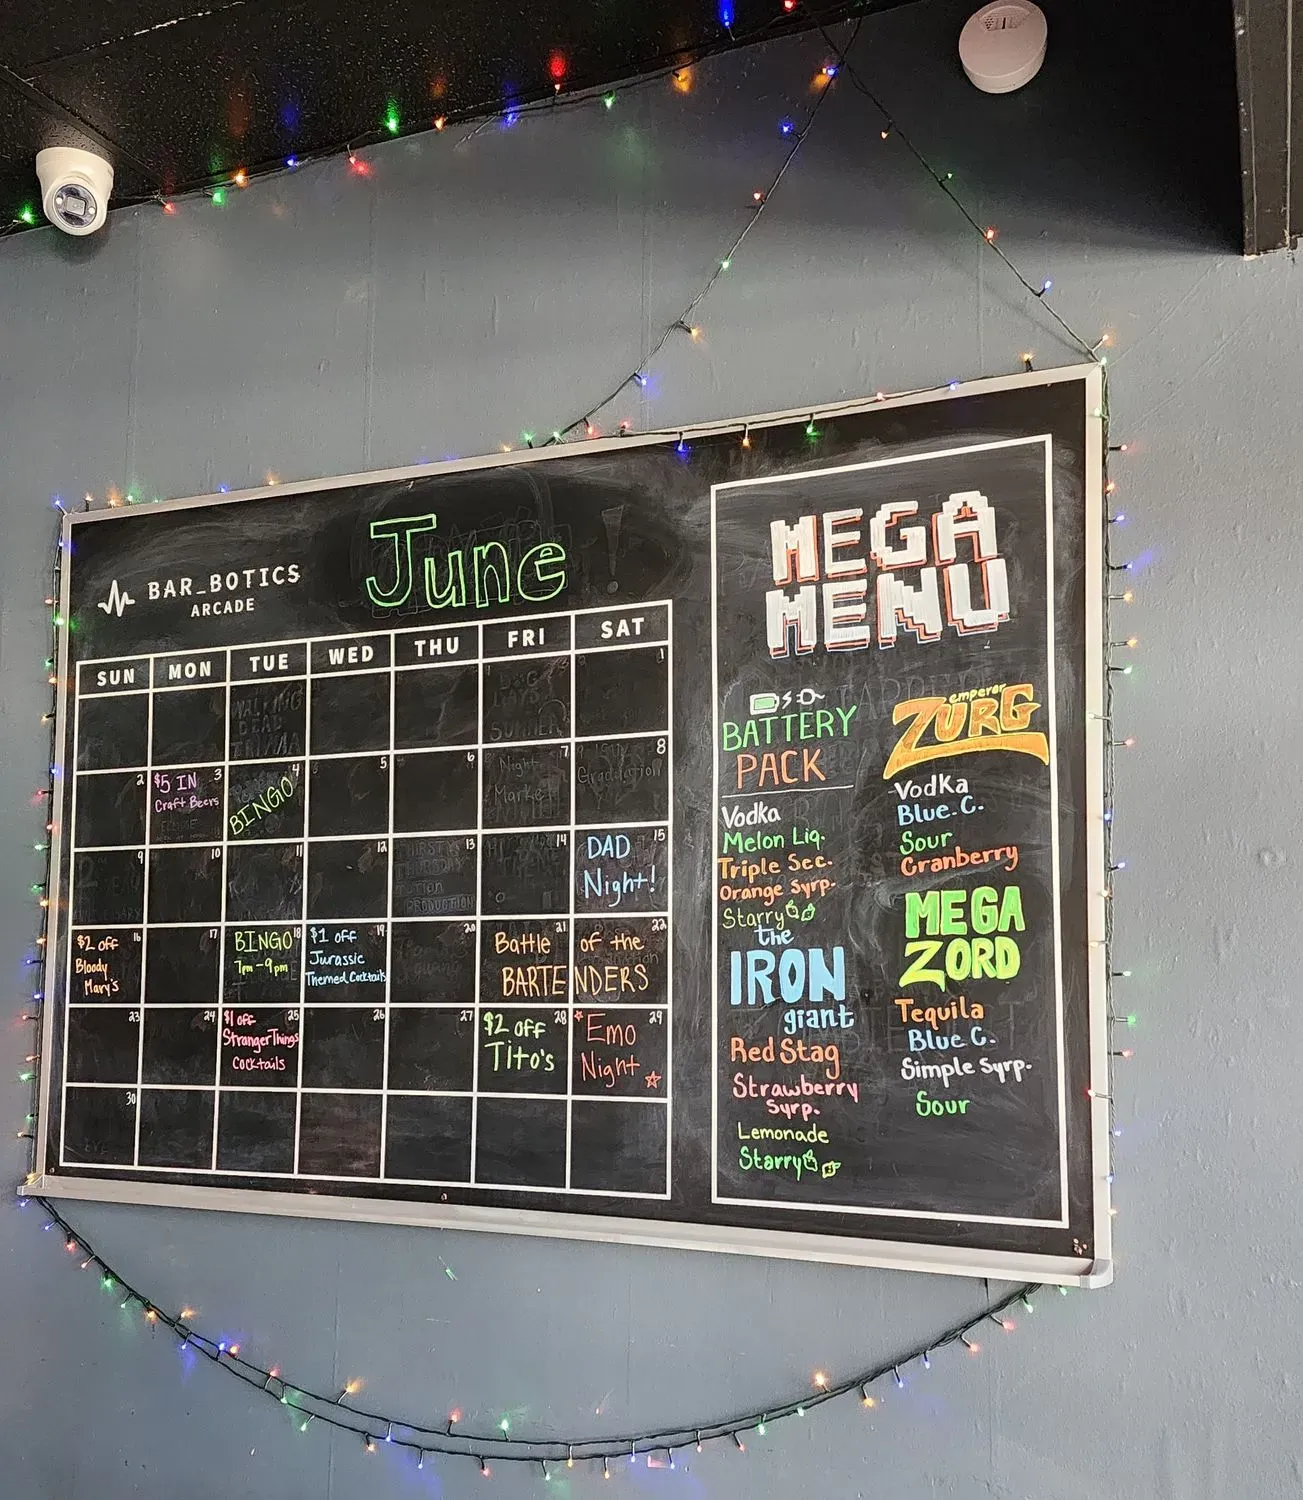 BAR_BOTICS
ARCADE
June
SUN MON TUE WED THU FRI SAT
1
2 3 4 5 6 7 8
$5 IN
Craft Beers
BINGO
9 10 11 12 13 14 15
DAD
Night!
16 17 18 19 20 21 22
$2 off
Bloody
Mary's
BINGO
7pm-9pm
$1 off
Jurassic
Themed Cocktails
Battle of the
BARTENDERS
23 24 25 26 27 28 29
$1 off
Stranger Things
Cocktails
$2 off
Tito's
Emo
Night
30
MEGA
MENU
BATTERY
PACK
Vodka
Melon Liq.
Triple Sec.
Orange Syrp.
Starry
the
IRON
giant
Red Stag
Strawberry
Syrp.
Lemonade
Starry
emperor
ZURG
Vodka
Blue. C.
Sour
Cranberry
MEGA
ZORD
Tequila
Blue C.
Simple Syrp.
Sour